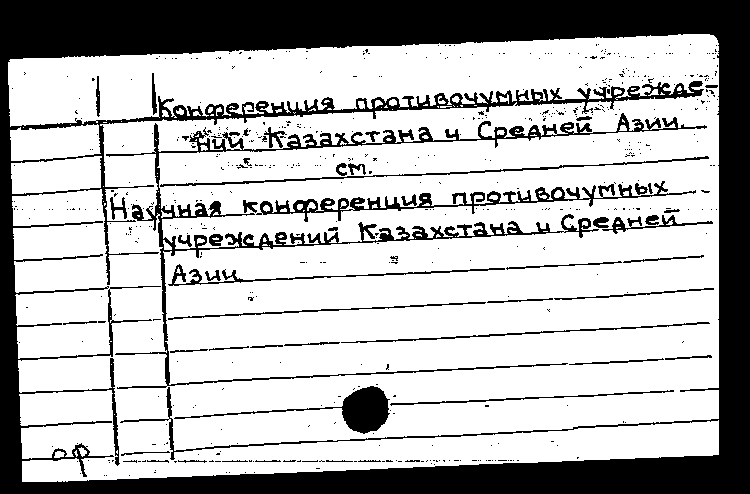 Конференция противочумных учрежде-
ний Казахстана и Средней Азии.
см.
Научная конференция противочумных
учреждений Казахстана и Средней
Азии
ор